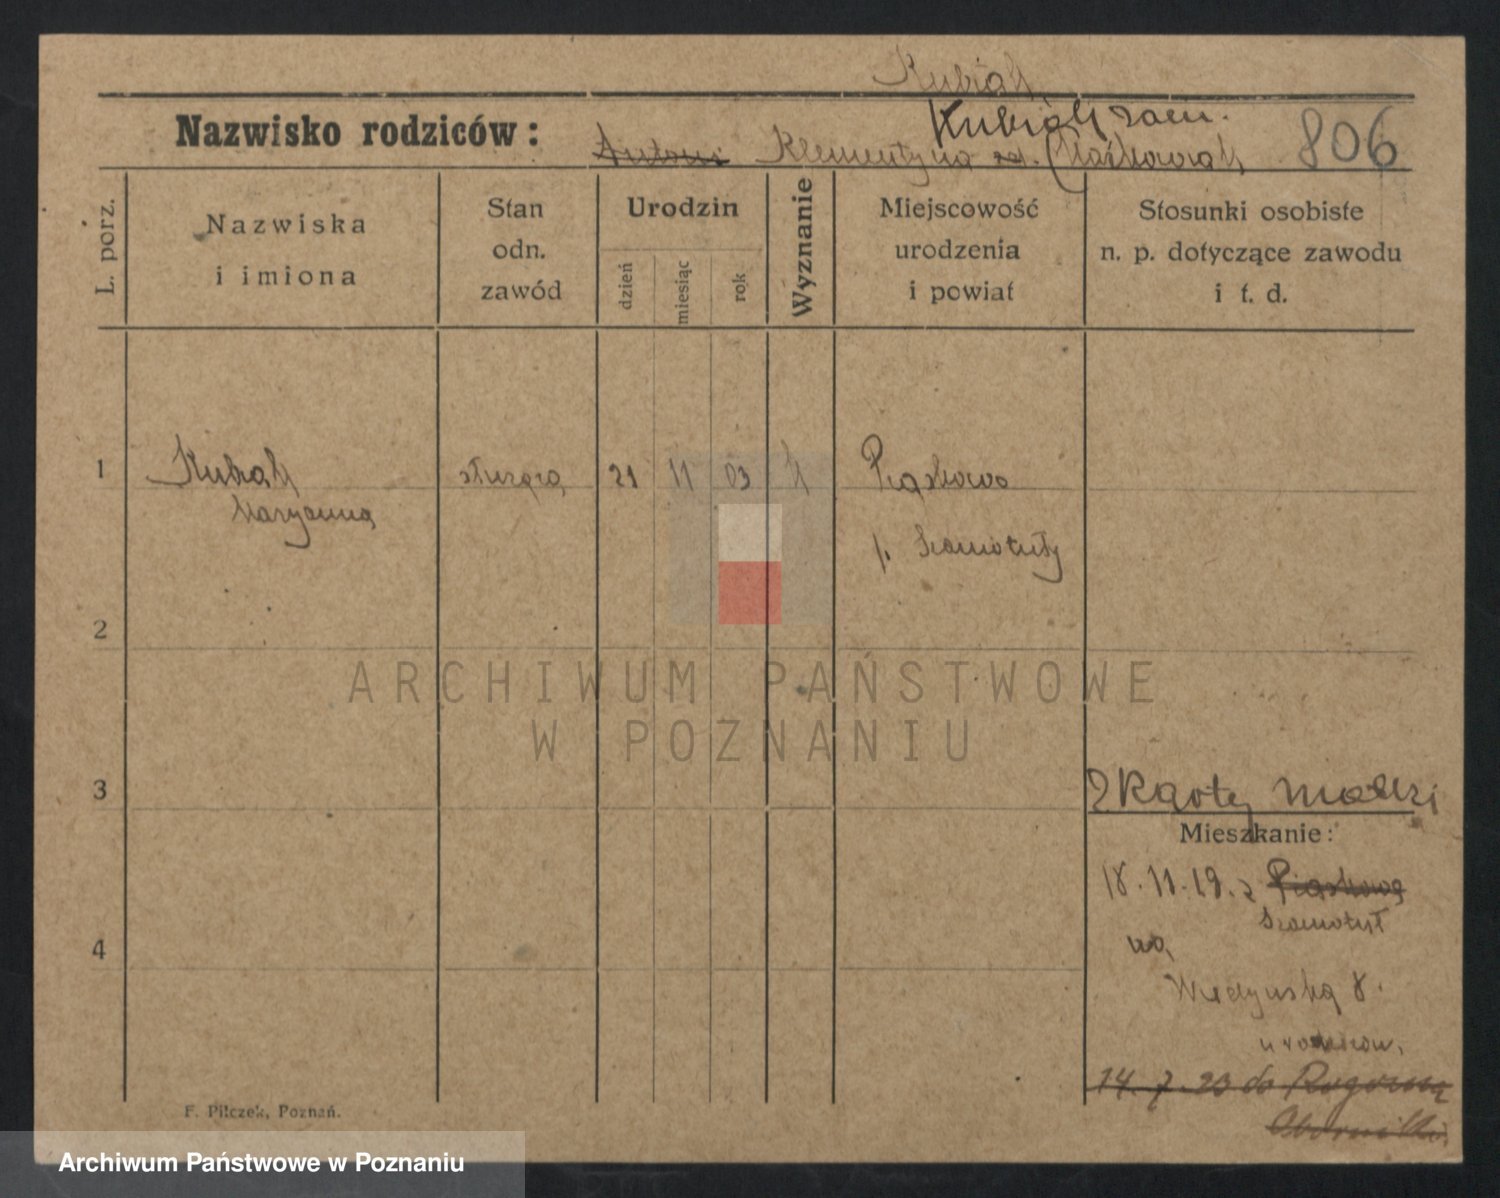 Kubiak
Kubiak zam.
Nazwisko rodziców: Antoni Klementyna 806
L. porz.
Nazwiska i imiona
Stan odn. zawód
Urodzin
dzień miesiąc rok
Wyznanie
Miejscowość urodzenia i powiat
Stosunki osobiste n. p. dotyczące zawodu i t. d.
1 Kubiak służąca 21 11 03 k Piaskowo
Maryanna
p. Szamotuły
2
ARCHIWUM PAŃSTWOWE
W POZNANIU
3
z Karty matki
Mieszkanie:
18.11.19. z Piaskowa
Szamotuł
4
na
8.
u rodziców.
14. 7. 23 do Rogoźna
F. Pilczek, Poznań.
Archiwum Państwowe w Poznaniu